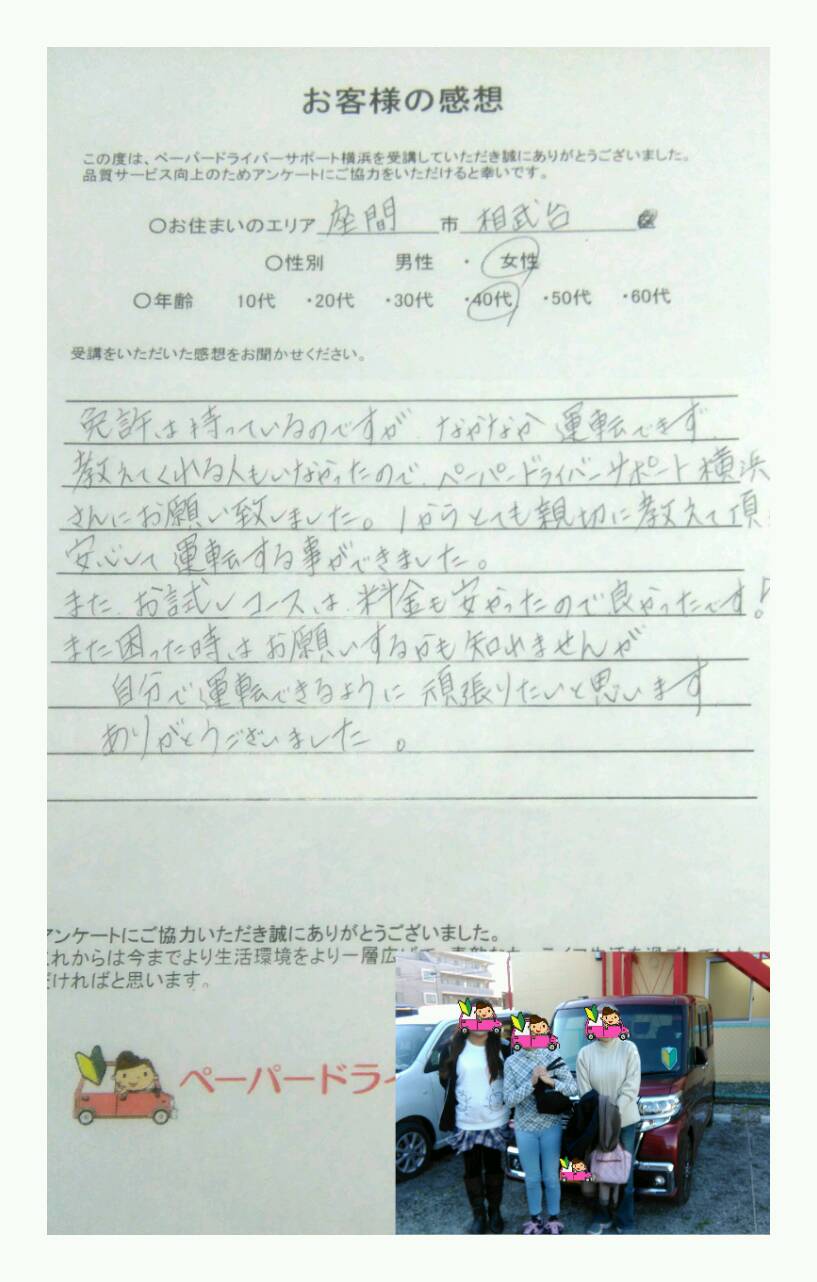 お客様の感想
この度は、ペーパードライバーサポート横浜を受講していただき誠にありがとうございました。
品質サービス向上のためアンケートにご協力をいただけると幸いです。
〇お住まいのエリア 座間 市 相武台
〇性別 男性 ・ 女性
〇年齢 10代 ・20代 ・30代 ・40代 ・50代 ・60代
受講をいただいた感想をお聞かせください。
免許は持っているのですが、なかなか運転できず、
教えてくれる人もいなかったので、ペーパードライバーサポート横浜
さんにお願い致しました。1からとても親切に教えて頂
安心して運転する事ができました。
また、お試しコースは、料金も安かったので良かったです!
また困った時はお願いするかも知れませんが
自分で運転できるように頑張りたいと思います
ありがとうございました。
アンケートにご協力いただき誠にありがとうございました。
これからは今までより生活環境をより一層広げて、
だければと思います。
ペーパードライ